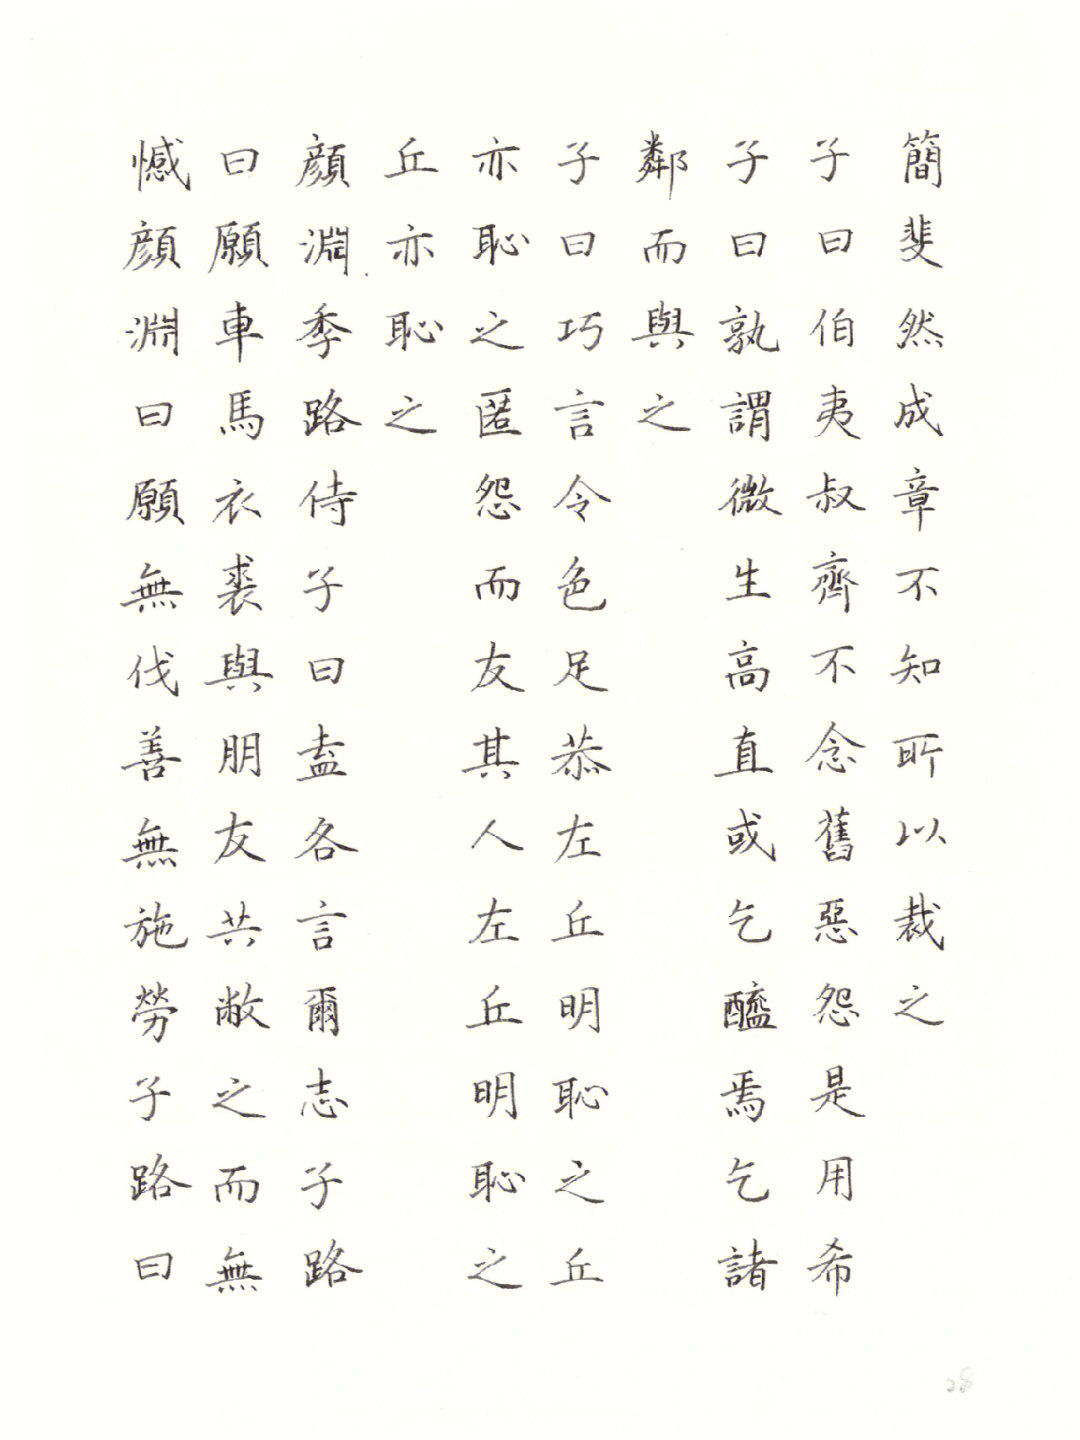 簡斐然成章不知所以裁之
子曰伯夷叔齊不念舊惡怨是用希
子曰孰謂微生高直或乞醯焉乞諸
鄰而與之
子曰巧言令色足恭左丘明恥之丘
亦恥之匿怨而友其人左丘明恥之
丘亦恥之
顏淵季路侍子曰盍各言爾志子路
曰願車馬衣裘與朋友共敝之而無
憾顏淵曰願無伐善無施勞子路曰
28